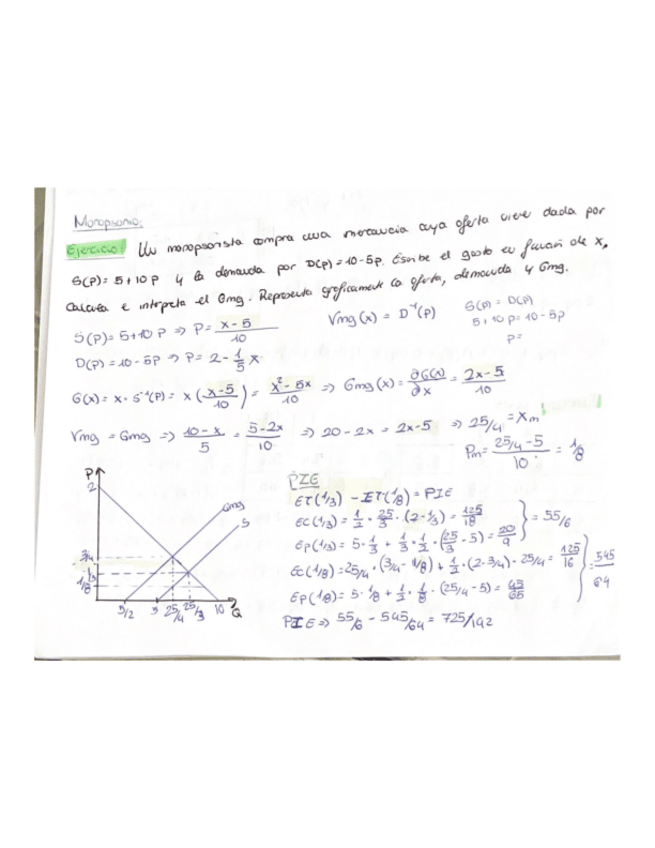 Monopsonio:
Ejercicio: Un monopsonista compra una mercancia cuya oferta viene dada por
S(P) = 5+10P y la demanda por D(P) = 10-5P. Escribe el gasto en función de x,
Calcula e interpreta el Gmg. Representa gráficamente la oferta, demanda y Gmg.
S(P) = 5+10P ⇒ P = x-5/10 Vmg(x) = D⁻¹(P) S(P) = D(P)
5+10P = 10-5P
D(P) = 10-5P ⇒ P = 2 - 1/5 x P=
G(x) = x · S⁻¹(P) = x (x-5/10) = x²-5x/10 ⇒ Gmg(x) = ∂G(x)/∂x = 2x-5/10
Vmg = Gmg ⇒ 10-x/5 = 5-2x/10 ⇒ 20-2x = 2x-5 ⇒ 25/4 = Xm
Pm = 25/4-5/10 = 1/8
P
2
Gmg
S
3/4
1/3
1/8
5/2 5 25/4 25/3 10 Q
PIE
ET(1/3) - ET(1/8) = PIE
EC(1/3) = 1/2 · 25/3 · (2-1/3) = 125/18
EP(1/3) = 5 · 1/3 + 1/3 · 1/2 · (25/3 - 5) = 20/9 } = 55/6
EC(1/8) = 25/4 · (3/4 - 1/8) + 1/2 · (2-3/4) · 25/4 = 125/16
EP(1/8) = 5 · 1/8 + 1/2 · 1/8 · (25/4 - 5) = 45/65 } = 545/64
PIE ⇒ 55/6 - 545/64 = 725/192